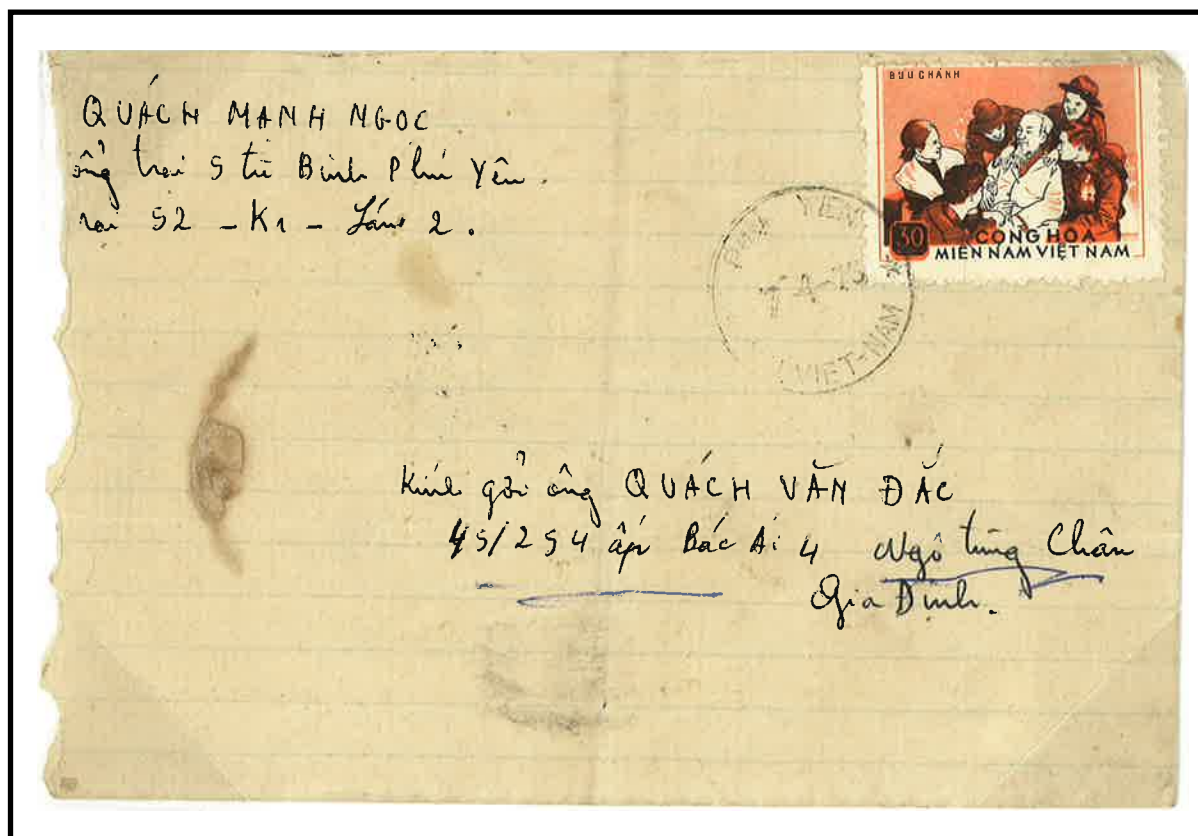 QUÁCH MẠNH NGOC
ổng trại 5 tù Binh Phú Yên.
rại S2 - K1 - Láng 2.
BƯU CHÁNH
30
CỘNG HÒA
MIỀN NAM VIỆT NAM
PHU YEN
VIET-NAM
Kính gởi ông QUÁCH VĂN ĐẮC
45/254 ấp Bác Ái 4 Ngô tùng Châu
Gia Định.